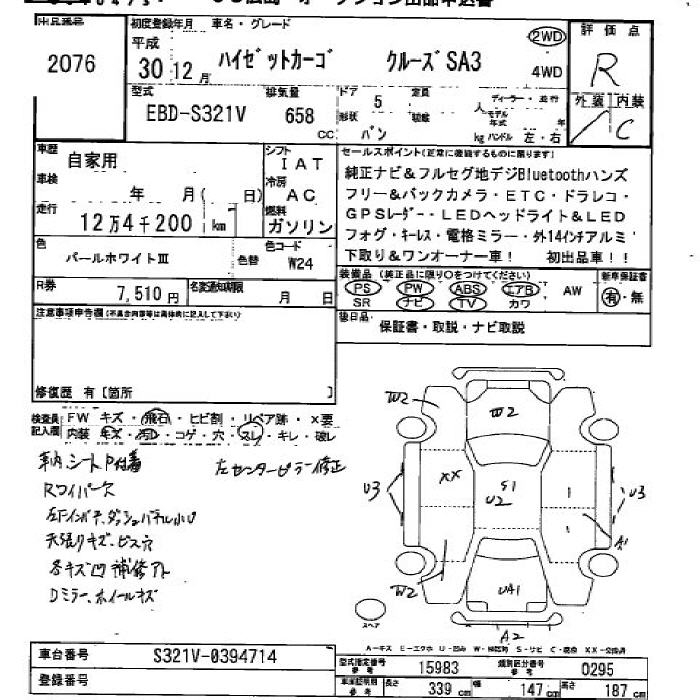 出品番号
2076
初度登録年月 車名・グレード
平成
30 12月
ハイゼットカーゴ クルーズ SA3
2WD
4WD
評価点
R
外装 内装
C
型式
EBD-S321V
排気量
658
CC
ドア 定員
5
形状
バン
人
kg ハンドル 左・右
車歴
自家用
車検
年 月 ( 日)
走行
12万4千200 km
シフト
IAT
冷房
AC
燃料
ガソリン
セールスポイント(正常に機能するものに限ります)
純正ナビ&フルセグ地デジBluetoothハンズ
フリー&バックカメラ・ETC・ドラレコ・
GPSレーダー・LEDヘッドライト&LED
フォグ・キーレス・電格ミラー・外14インチアルミ
下取り&ワンオーナー車! 初出品車!!
色
パールホワイトⅢ
色替
色コード
W24
R券
7,510円
名変通知期限
月 日
装備品 (純正品に限り○をつけてください)
PS PW ABS エアB AW
SR ナビ TV カワ
新車保証書
有・無
後日品
保証書・取説・ナビ取説
注意事項申告欄(不具合内容等は具体的に記入して下さい)
修復歴 有[箇所 ]
検査員 FW キズ・飛石・ヒビ割・リペア跡・×要
記入欄 内装 キズ・汚れ・コゲ・穴・スレ・キレ・破レ
車内、シート
左センターピラー修正
Rワイパー欠
天張りキズ・ビス穴
各キズ凹 補修アト
Dミラー、ホイールキズ
W2
W2
XX
S1
U2
U3
U3
A1
W2
UA1
A2
スペア
A-キズ E-エクボ U-凹み W-補修跡 S-サビ C-腐蝕 XX-交換済
車台番号
S321V-0394714
登録番号
型式指定番号
参考
15983
類別区分番号
参考
0295
長さ
339 cm
幅
147 cm
高さ
187 cm